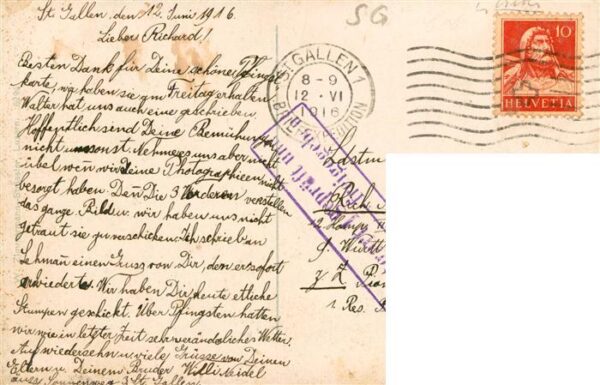 St. Gallen, den 12. Juni 1916.
Lieber Richard!
Besten Dank für Deine schöne Pfingst
karte, wir haben sie am Freitag erhalten
Walter hat uns auch eine geschrieben.
Hoffentlich sind Deine Bemühungen
nicht umsonst. Nehme es uns aber nicht
übel wen wir Deine Photographieen nicht
besorgt haben. Den Die 3 Vorderen verstellen
das ganze Bild u. wir haben uns nicht
getraut sie zu verschicken. Ich schrieb an
Lehman einen Gruss von Dir, den er sofort
erwiederte. Wir haben Dir heute etliche
Stumpen geschickt. Über Pfingsten hatten
wir wie in letzter Zeit sehr veränderliches Wetter.
Auf wiedersehn u. viele Grüsse von Deinen
Eltern u. Deinem Bruder Willi Neidel
St. Gallen
SG
ST. GALLEN 1
8-9
12. VI
1916
10
HELVETIA
Geprüft u.
Rich
12 Komp.
1. Res.